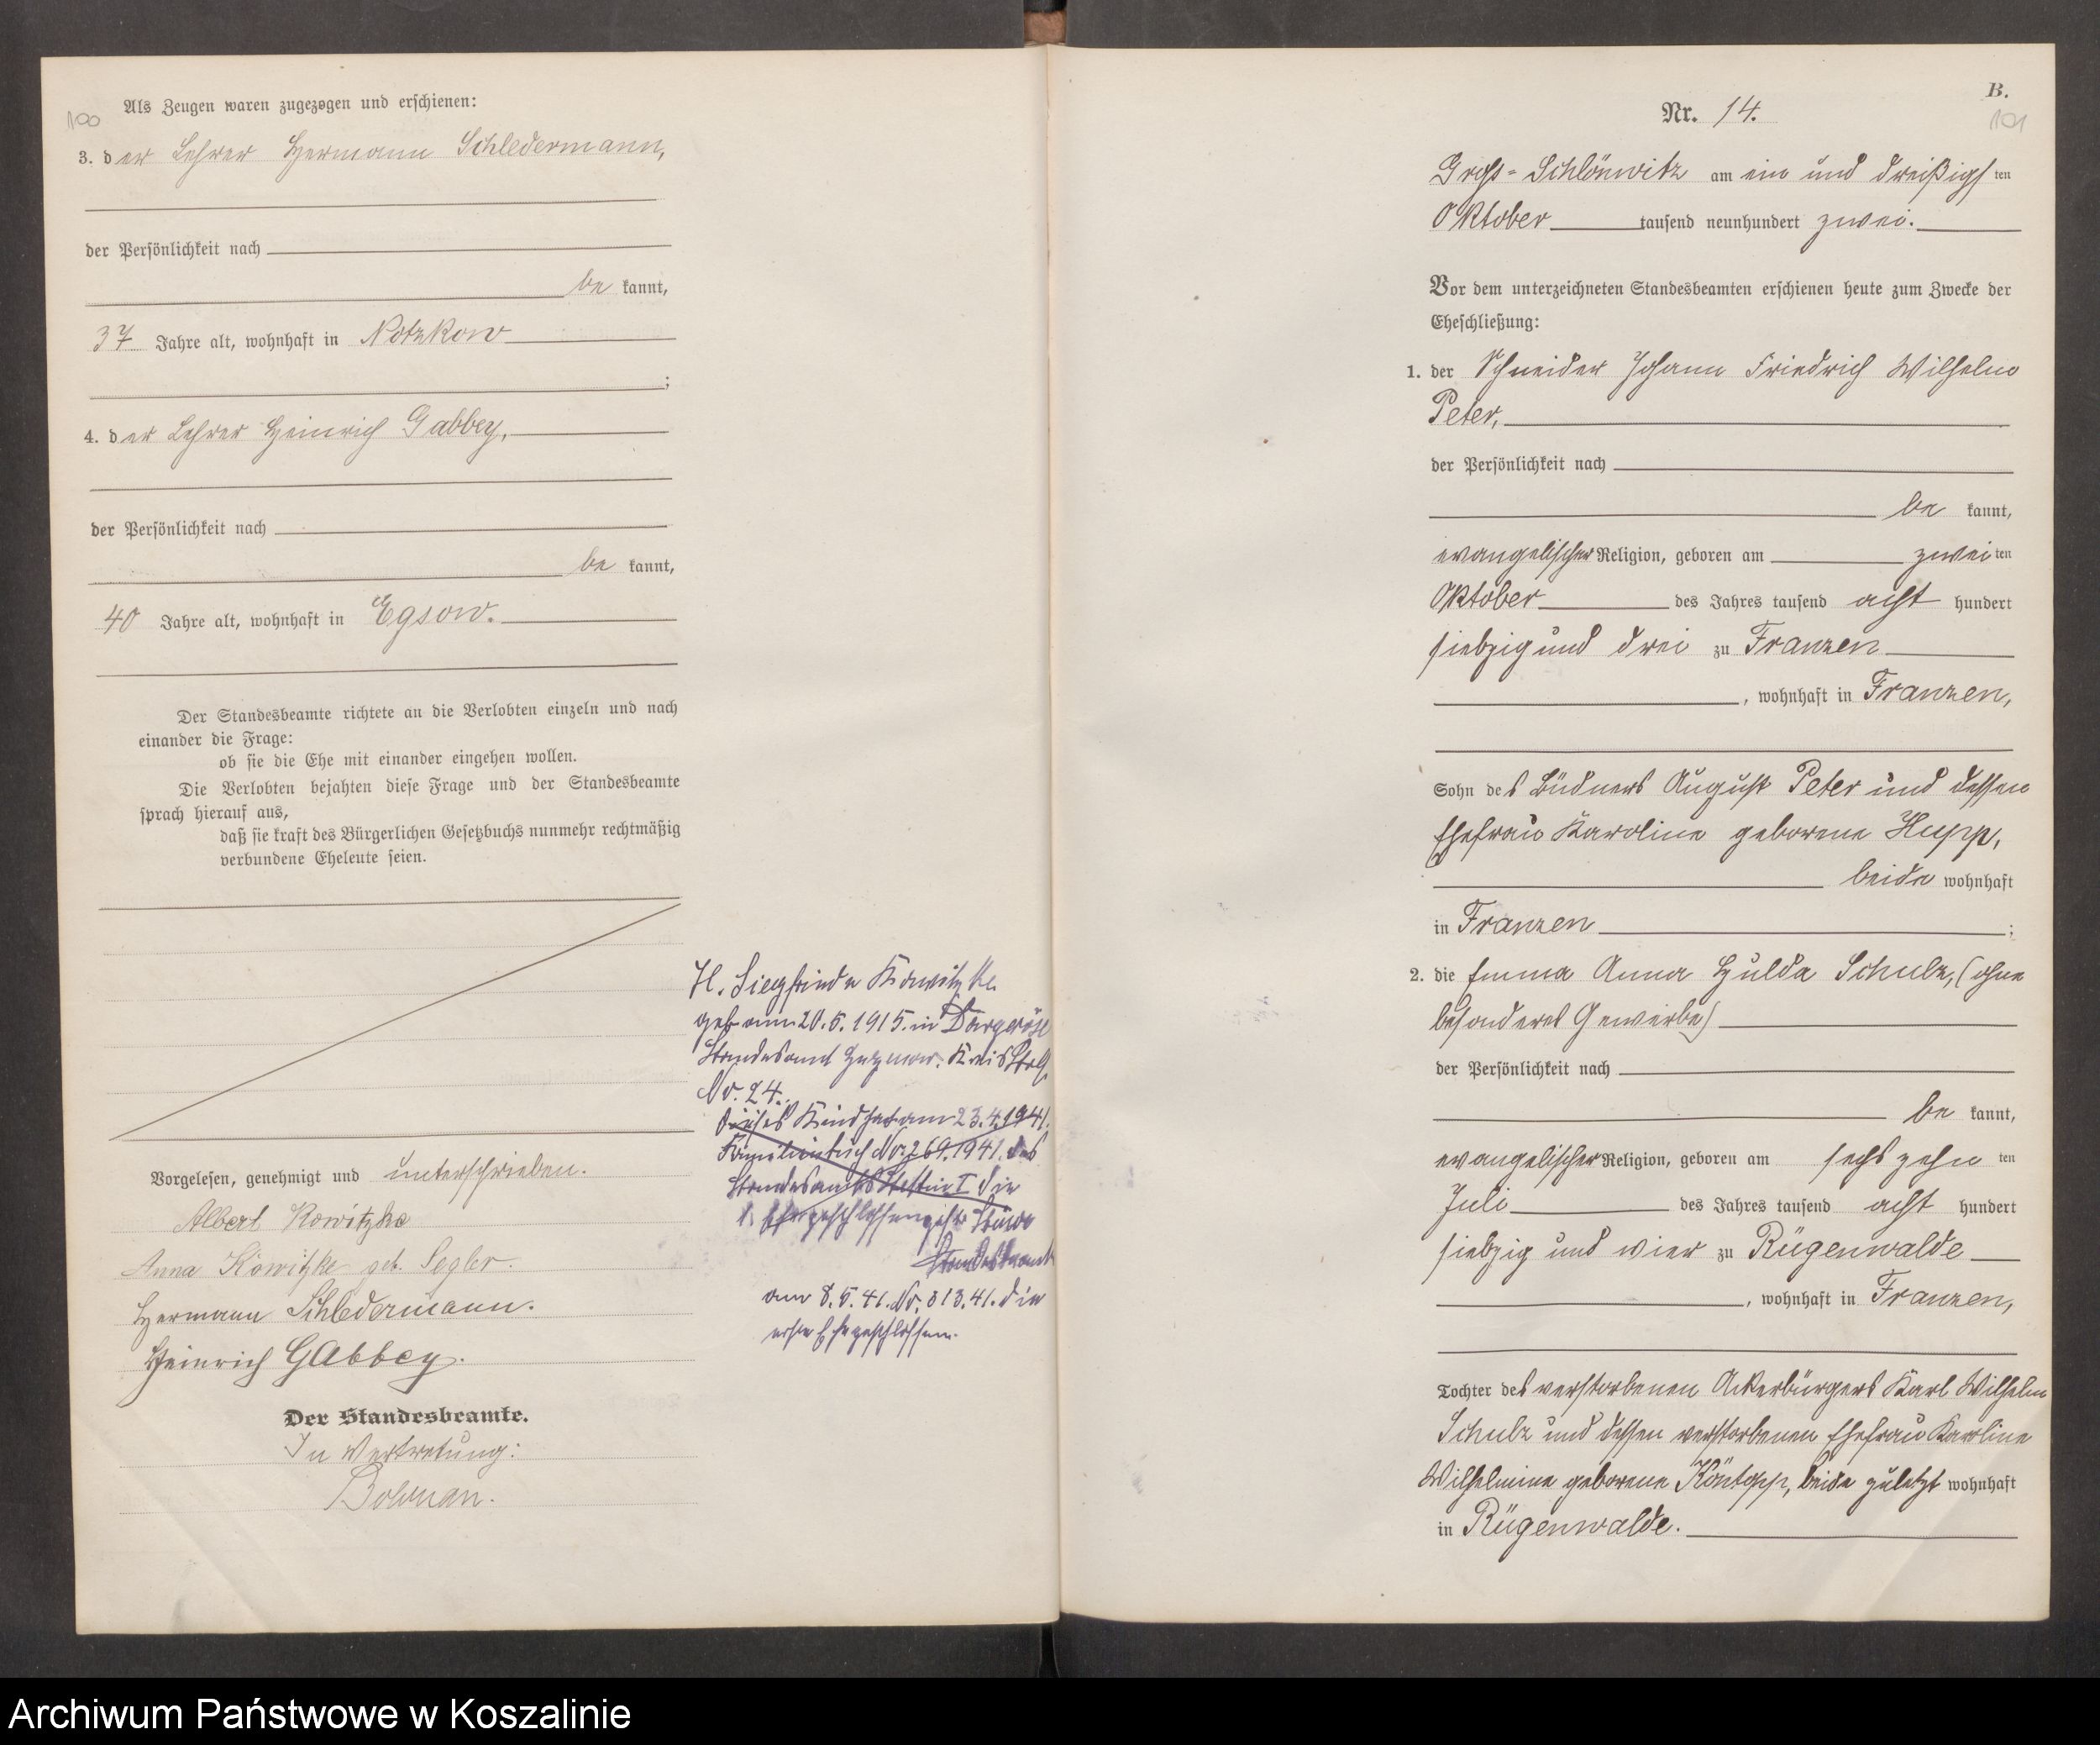 100
Als Zeugen waren zugezogen und erschienen:
3. der Lehrer Hermann Schledermann,
der Persönlichkeit nach
be kannt,
37 Jahre alt, wohnhaft in Notzkow
;
4. der Lehrer Heinrich Gabbey,
der Persönlichkeit nach
be kannt,
40 Jahre alt, wohnhaft in Egsow.
Der Standesbeamte richtete an die Verlobten einzeln und nach
einander die Frage:
ob sie die Ehe mit einander eingehen wollen.
Die Verlobten bejahten diese Frage und der Standesbeamte
sprach hierauf aus,
daß sie kraft des Bürgerlichen Gesetzbuchs nunmehr rechtmäßig
verbundene Eheleute seien.
Vorgelesen, genehmigt und unterschrieben.
Albert Kowitzke
Anna Kowitzke geb. Segler.
Hermann Schledermann.
Heinrich Gabbey.
Der Standesbeamte.
In Vertretung:
H. Siegfriede Kowitzke
geb. am 20.5.1915. in Dargeröse
Standesamt Kreis Stolp
Nr. 24.
Dieses Kind hat am 23.4.1941.
Familienbuch Nr. 269.1941. des
Standesamts Stettin I die
1. Ehe geschlossen
am 8.5.41. Nr. 313.41. die
erste Ehe geschlossen.
B.
101
Nr. 14.
Groß-Schlönwitz am ein und dreißigsten
Oktober tausend neunhundert zwei.
Vor dem unterzeichneten Standesbeamten erschienen heute zum Zwecke der
Eheschließung:
1. der Schneider Johann Friedrich Wilhelm
Peter,
der Persönlichkeit nach
be kannt,
evangelischer Religion, geboren am zweiten
Oktober des Jahres tausend acht hundert
siebzig und drei zu Franzen
, wohnhaft in Franzen,
Sohn des Büdners August Peter und dessen
Ehefrau Karoline geborene Hupp,
beide wohnhaft
in Franzen ;
2. die Emma Anna Hulda Schulz, (ohne
besonderes Gewerbe)
der Persönlichkeit nach
be kannt,
evangelischer Religion, geboren am sechszehn ten
Juli des Jahres tausend acht hundert
siebzig und vier zu Rügenwalde
, wohnhaft in Franzen,
Tochter des verstorbenen Ackerbürgers Karl Wilhelm
Schulz und dessen verstorbenen Ehefrau Karoline
Wilhelmine geborene Köntopp, beide zuletzt wohnhaft
in Rügenwalde.
Archiwum Państwowe w Koszalinie